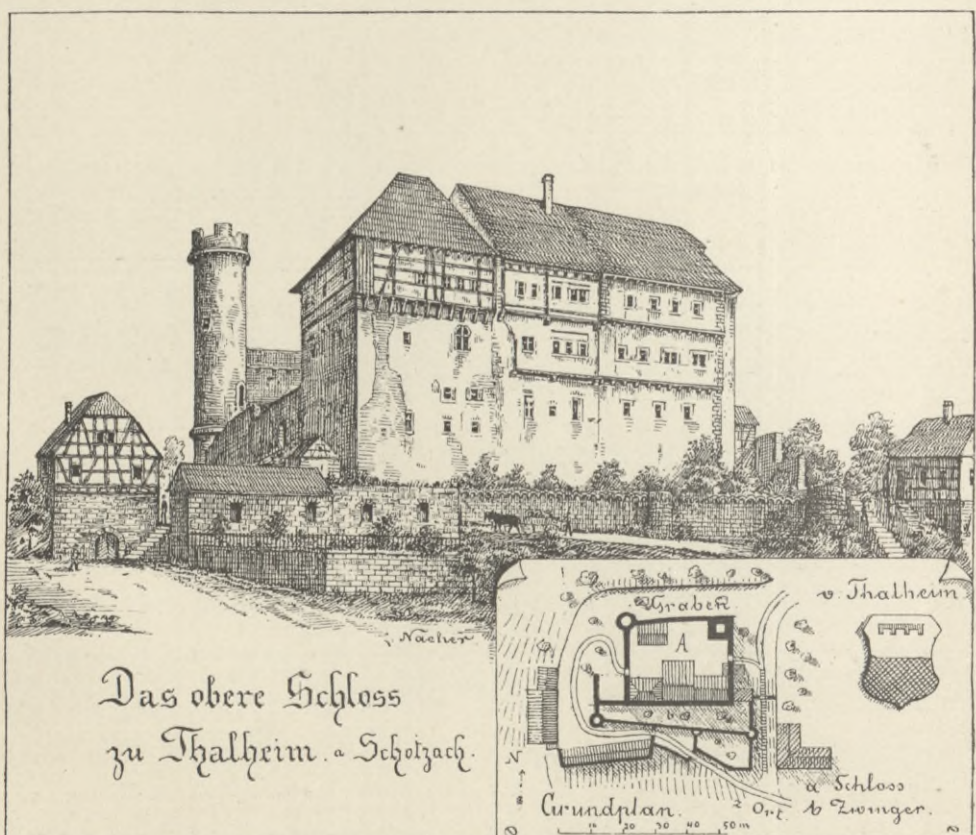 J. Näher
Das obere Schloss
zu Thalheim. a Schotzach.
Graben
v. Thalheim
A
b
N
s
Grundplan.
z Ort.
a Schloss
b Zwinger.
10 20 30 40 50 m